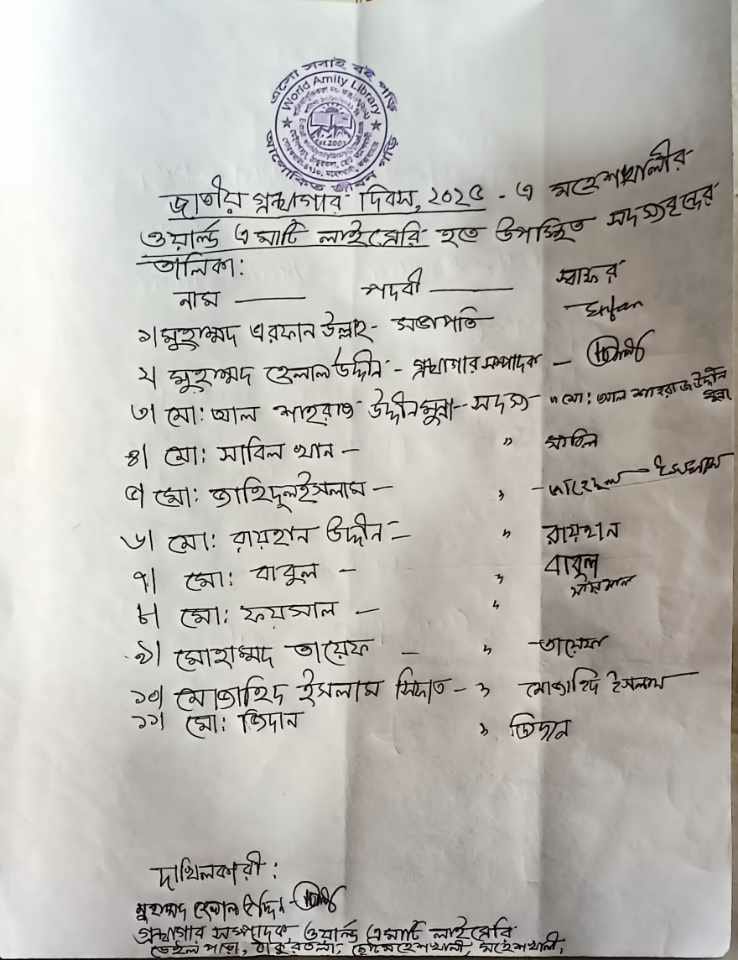 এসো সবাই বই পড়ি
World Amity Library
আলোকিত জীবন গড়ি
জাতীয় গ্রন্থাগার দিবস, ২০২৫ - এ মহেশখালীর
ওয়ার্ল্ড এমাটি লাইব্রেরি হতে উপস্থিত সদস্যবৃন্দের
তালিকা:
নাম — পদবী — স্বাক্ষর
১। মুহাম্মদ এরফান উল্লাহ - সভাপতি Erfan
২। মুহাম্মদ হেলাল উদ্দীন - গ্রন্থাগার সম্পাদক —
৩। মো: আল শাহরাজ উদ্দীন মুন্না - সদস্য - মো: আল শাহরাজ উদ্দীন মুন্না
৪। মো: সাবিল খান - " সাবিল
৫। মো: জাহিদুল ইসলাম - " ইসলাম
৬। মো: রায়হান উদ্দীন - " রায়হান
৭। মো: বাবুল - " বাবুল
৮। মো: ফয়সাল - " ফয়সাল
৯। মোহাম্মদ তায়েফ - " তায়েফ
১০। মোজাহিদ ইসলাম সিফাত - " মোজাহিদ ইসলাম
১১। মো: জিদান " জিদান
দাখিলকারী:
মুহাম্মদ হেলাল উদ্দিন -
গ্রন্থাগার সম্পাদক, ওয়ার্ল্ড এমাটি লাইব্রেরি
তেইল পাড়া, ঠাকুরতলা, ছোট মহেশখালী, মহেশখালী,